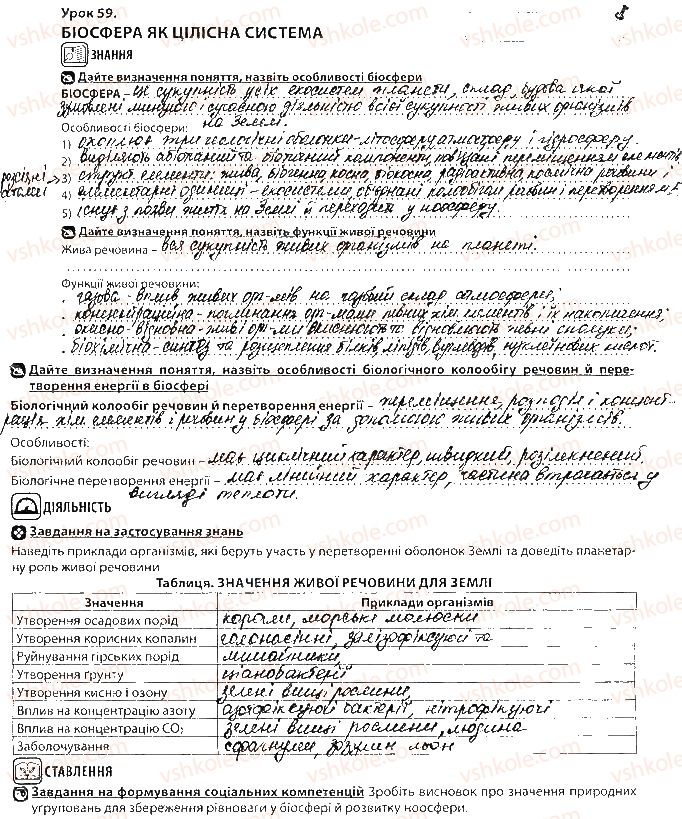 Урок 59.
БІОСФЕРА ЯК ЦІЛІСНА СИСТЕМА
ЗНАННЯ
Дайте визначення поняття, назвіть особливості біосфери
БІОСФЕРА – це сукупність усіх екосистем планети, склад, будова якої
зумовлені минулою і сучасною діяльністю всієї сукупності живих організмів
на Землі.
Особливості біосфери:
1) охоплює три геологічні оболонки - літосферу, атмосферу і гідросферу.
2) виділяють абіотичний та біотичний компоненти, пов'язані переміщенням елементів
3) структ. елементи: жива, біогенна, косна, біокосна, радіоактивна, космічна речовини і
4) елементарні одиниці - екосистеми об'єднані колообігом речовин і перетворенням Е
5) існує з появи життя на Землі й переходить у ноосферу.
Дайте визначення поняття, назвіть функції живої речовини
Жива речовина – вся сукупність живих організмів на планеті.
Функції живої речовини:
газова - вплив живих орг-мів на газовий склад атмосфери;
концентраційна - поглинання орг-мами певних хім. елементів і їх накопичення;
окисно-відновна - живі орг-ми окиснюють та відновлюють певні сполуки;
біохімічна - синтез та розщеплення білків, ліпідів, вуглеводів, нуклеїнових кислот.
Дайте визначення поняття, назвіть особливості біологічного колообігу речовин й пере-
творення енергії в біосфері
Біологічний колообіг речовин й перетворення енергії – переміщення, розподіл і концент-
рація хім. елементів і речовин у біосфері за допомогою живих організмів.
Особливості:
Біологічний колообіг речовин – має циклічний характер, швидкий,
Біологічне перетворення енергії – має лінійний характер, частина втрачається у
вигляді теплоти.
ДІЯЛЬНІСТЬ
Завдання на застосування знань
Наведіть приклади організмів, які беруть участь у перетворенні оболонок Землі та доведіть планетар-
ну роль живої речовини
Таблиця. ЗНАЧЕННЯ ЖИВОЇ РЕЧОВИНИ ДЛЯ ЗЕМЛІ
Значення Приклади організмів
Утворення осадових порід корали, морські молюски
Утворення корисних копалин голонасінні,
Руйнування гірських порід лишайники
Утворення ґрунту ціанобактерії
Утворення кисню і озону зелені вищі рослини,
Вплив на концентрацію азоту азотфіксуючі бактерії, нітрофікуючі
Вплив на концентрацію CO₂ зелені вищі рослини, людина
Заболочування сфагнуми, зозулин льон
СТАВЛЕННЯ
Завдання на формування соціальних компетенцій Зробіть висновок про значення природних
угруповань для збереження рівноваги у біосфері й розвитку ноосфери.
vshkole.com